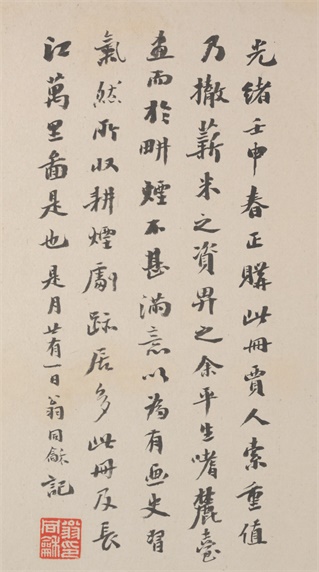 光緒壬申春正購此冊賈人索重值
乃撤薪米之資畀之余平生嗜麓臺
畫而於畊煙不甚滿意以為有画史習
氣然所收耕煙劇跡居多此冊及長
江萬里圖是也是月廿有一日翁同龢記
翁印同龢